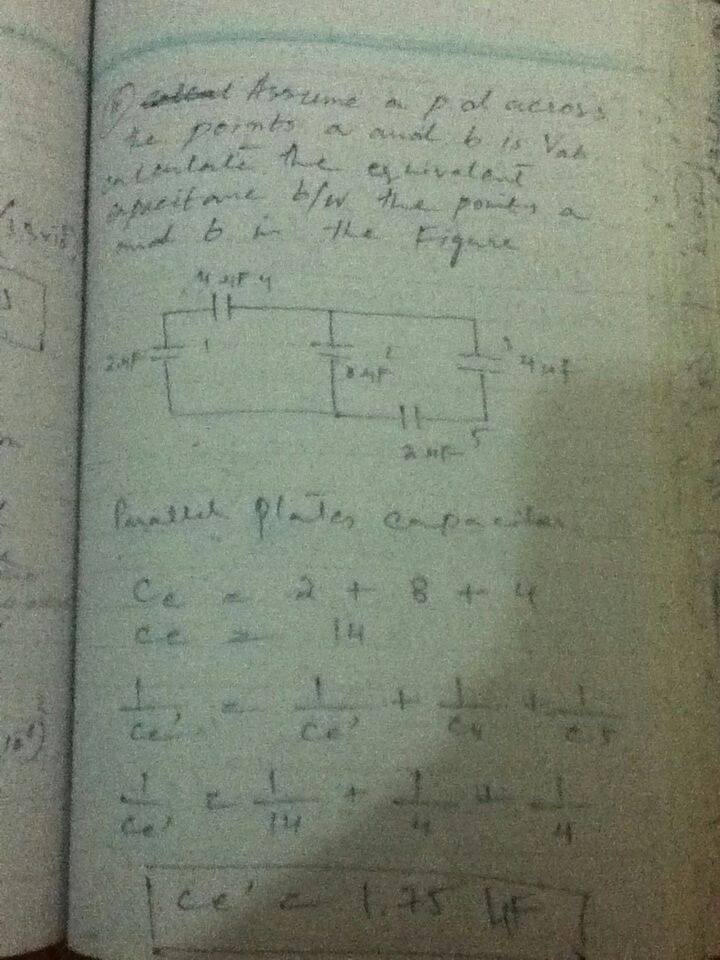 Assume a pd across
the points a and b is Vab
calculate the equivalent
capacitane b/w the points a
and b in the Figure
4 μF 4
2 μF 1
8 μF 2
3 4 μF
2 μF 5
Parallel Plates capacitor
Ce = 2 + 8 + 4
Ce = 14
1/Ce' = 1/Ce' + 1/C4 + 1/C5
1/Ce' = 1/14 + 1/4 + 1/4
Ce' = 1.75 μF